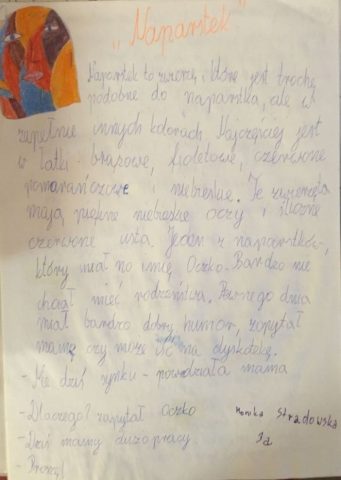 „Naparstek”
Naparstek to zwierzę, które jest trochę
podobne do naparstka, ale w
zupełnie innych kolorach. Najczęściej jest
w łatki brązowe, fioletowe, czerwone
pomarańczowe i niebieskie. Te zwierzęta
mają piękne niebieskie oczy i śliczne
czerwone usta. Jeden z naparstków,
który miał na imię Oczko. Bardzo nie
chciał mieć rodzeństwa. Pewnego dnia
miał bardzo dobry humor, zapytał
mamę czy może iść na dyskotekę.
- Nie dziś synku - powiedziała mama
- Dlaczego? zapytał Oczko
- Dziś mamy dużo pracy.
- Proszę!
Monika Stradowska